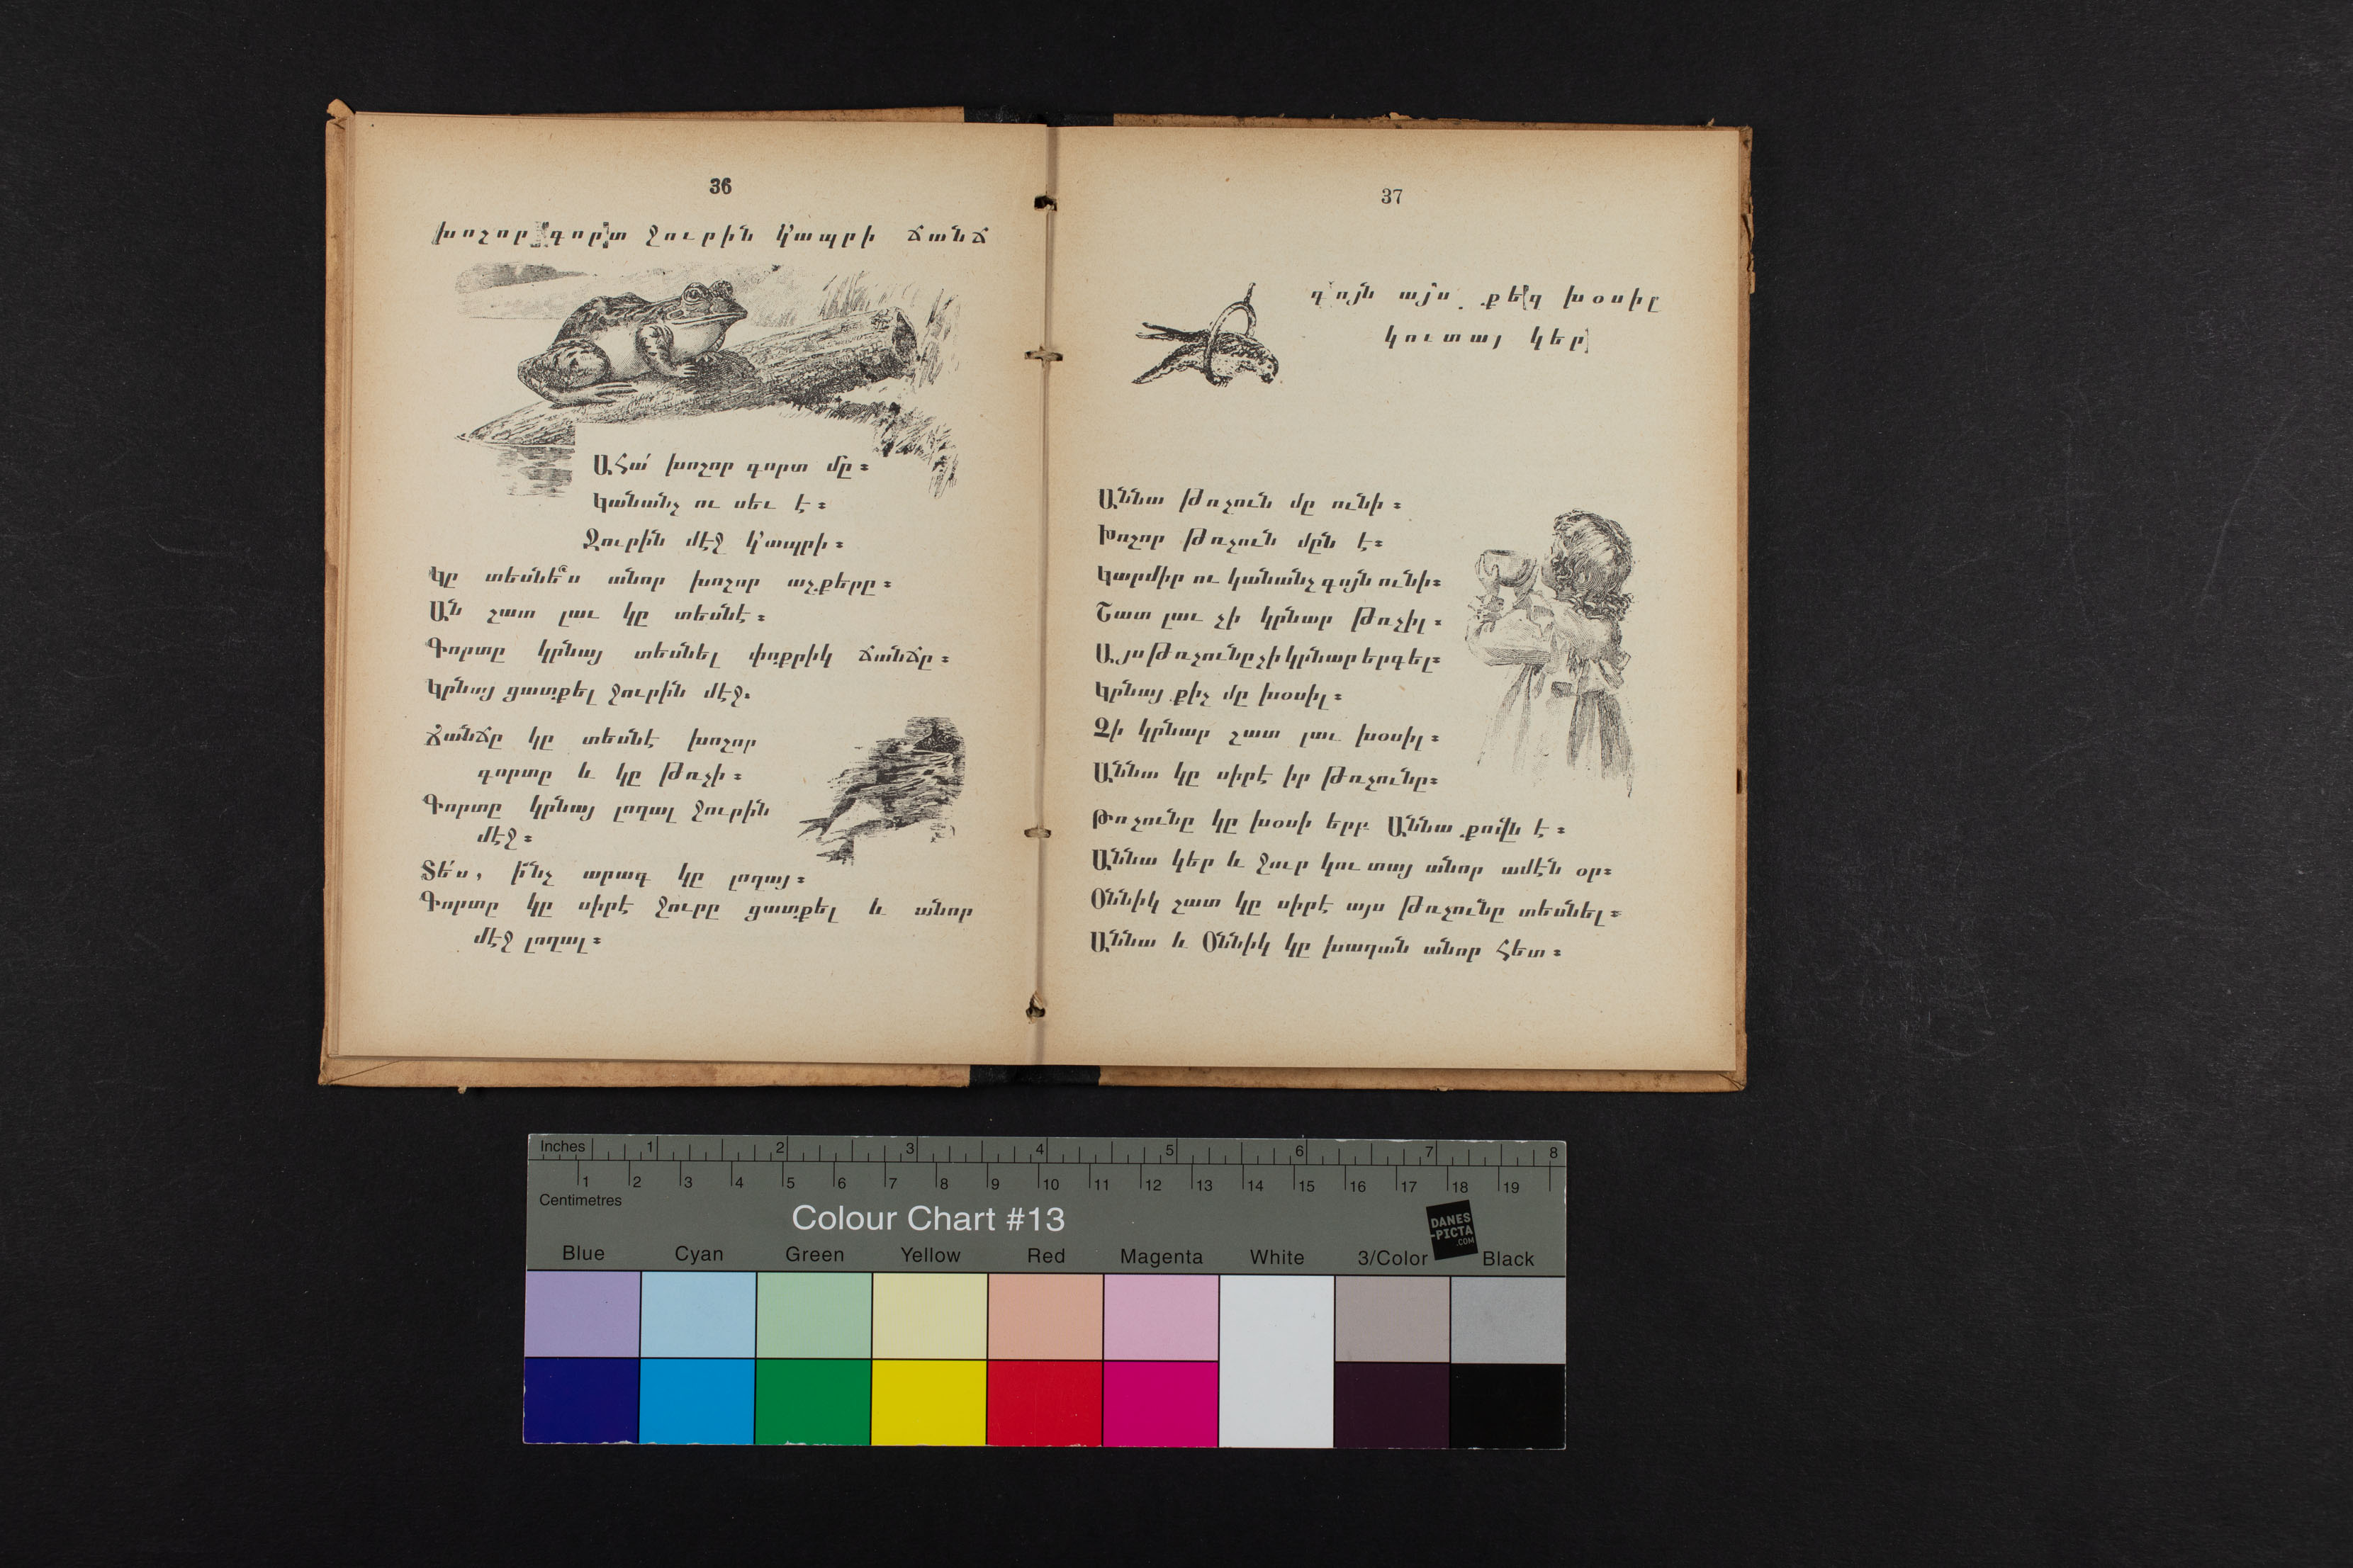 36
խոշոր գորտ ջուրին կ՚ապրի ճանճ
Ահա՛ խոշոր գորտ մը։
Կանանչ ու սեւ է։
Ջուրին մէջ կ՚ապրի։
Կը տեսնե՞ս անոր խոշոր աչքերը։
Ան շատ լաւ կը տեսնէ։
Գորտը կրնայ տեսնել փոքրիկ ճանճը։
Կրնայ ցատքել ջուրին մէջ.
Ճանճը կը տեսնէ խոշոր
գորտը և կը թռչի։
Գորտը կրնայ լողալ ջուրին
մէջ։
Տե՛ս, ի՛նչ արագ կը լողայ։
Գորտը կը սիրէ ջուրը ցատքել և անոր
մէջ լողալ։
37
գոյն այս քեզ խօսիլ
կուտայ կեր
Աննա թռչուն մը ունի։
Խոշոր թռչուն մըն է։
Կարմիր ու կանանչ գոյն ունի։
Շատ լաւ չի կրնար թռչիլ։
Այս թռչունը չի կրնար երգել։
Կրնայ քիչ մը խօսիլ։
Չի կրնար շատ լաւ խօսիլ։
Աննա կը սիրէ իր թռչունը։
Թռչունը կը խօսի երբ Աննա քովն է։
Աննա կեր և ջուր կու տայ անոր ամէն օր։
Օննիկ շատ կը սիրէ այս թռչունը տեսնել։
Աննա և Օննիկ կը խաղան անոր հետ։
Inches 1 2 3 4 5 6 7 8
1 2 3 4 5 6 7 8 9 10 11 12 13 14 15 16 17 18 19
Centimetres
Colour Chart #13
DANES
-PICTA
.COM
Blue Cyan Green Yellow Red Magenta White 3/Color Black